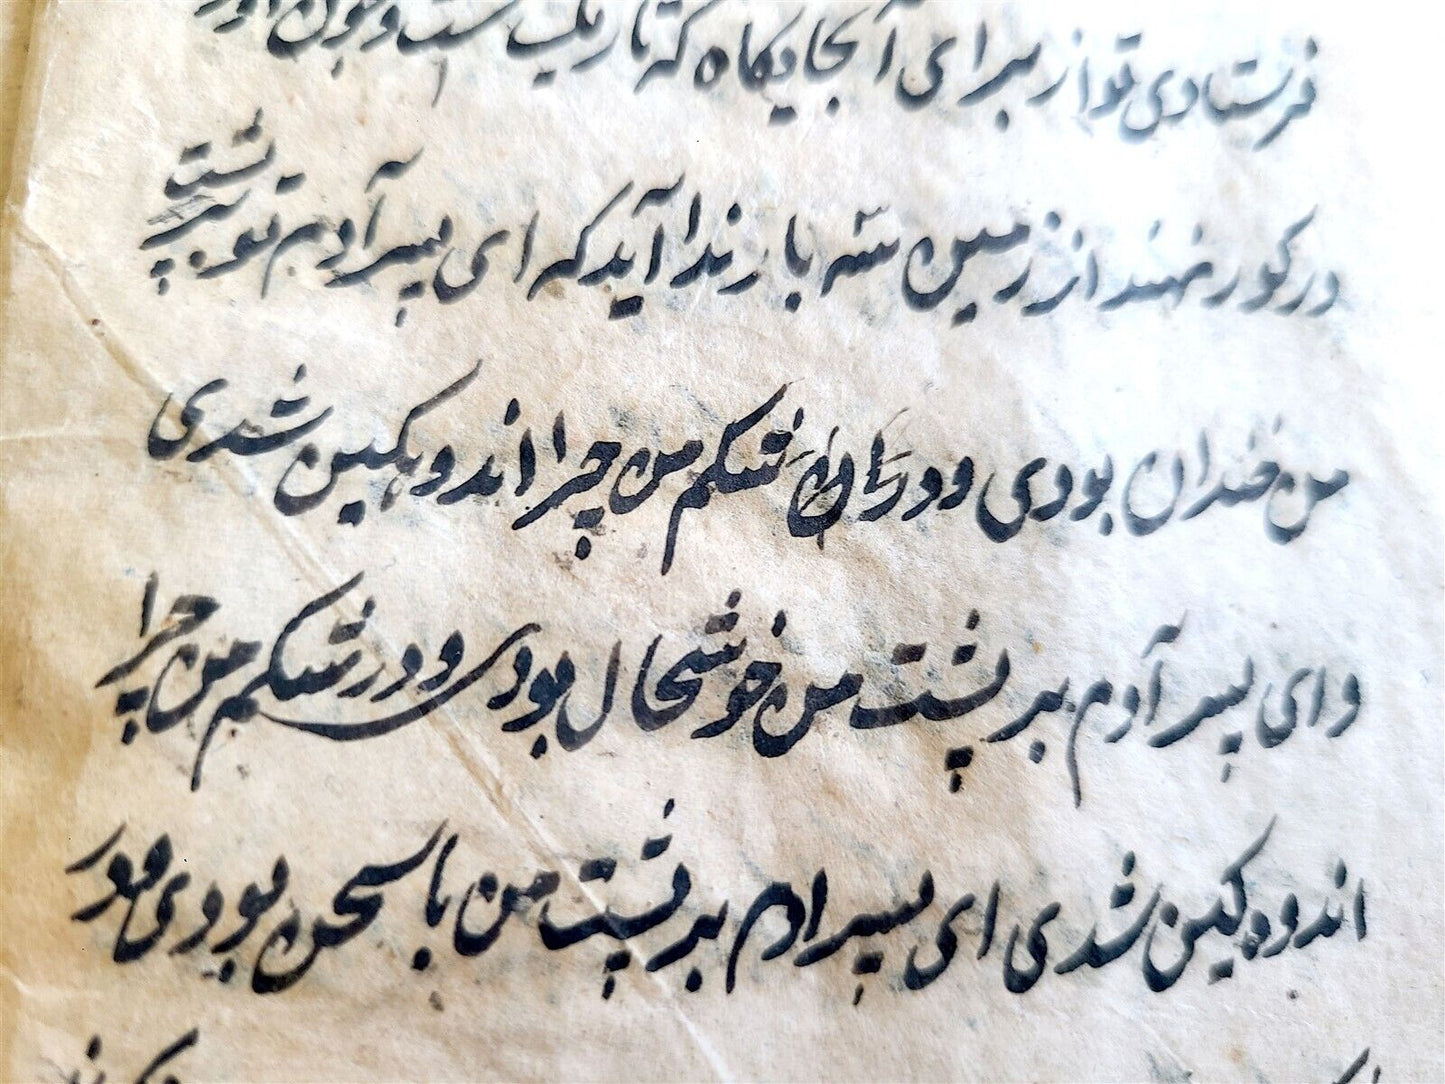 فرستادی تو از برای آنجایکاه که تاریک ست و چون اور
در کور نهند از زمین سه بار ندا آید که ای پسر آدم تو بر پشت
من خندان بودی و در شکم من چرا اندوهکین شدی
و ای پسر آدم بر پشت من خوشحال بودی و در شکم من چرا
اندوهکین شدی ای پسر ادم بر پشت من با سخن بودی و در